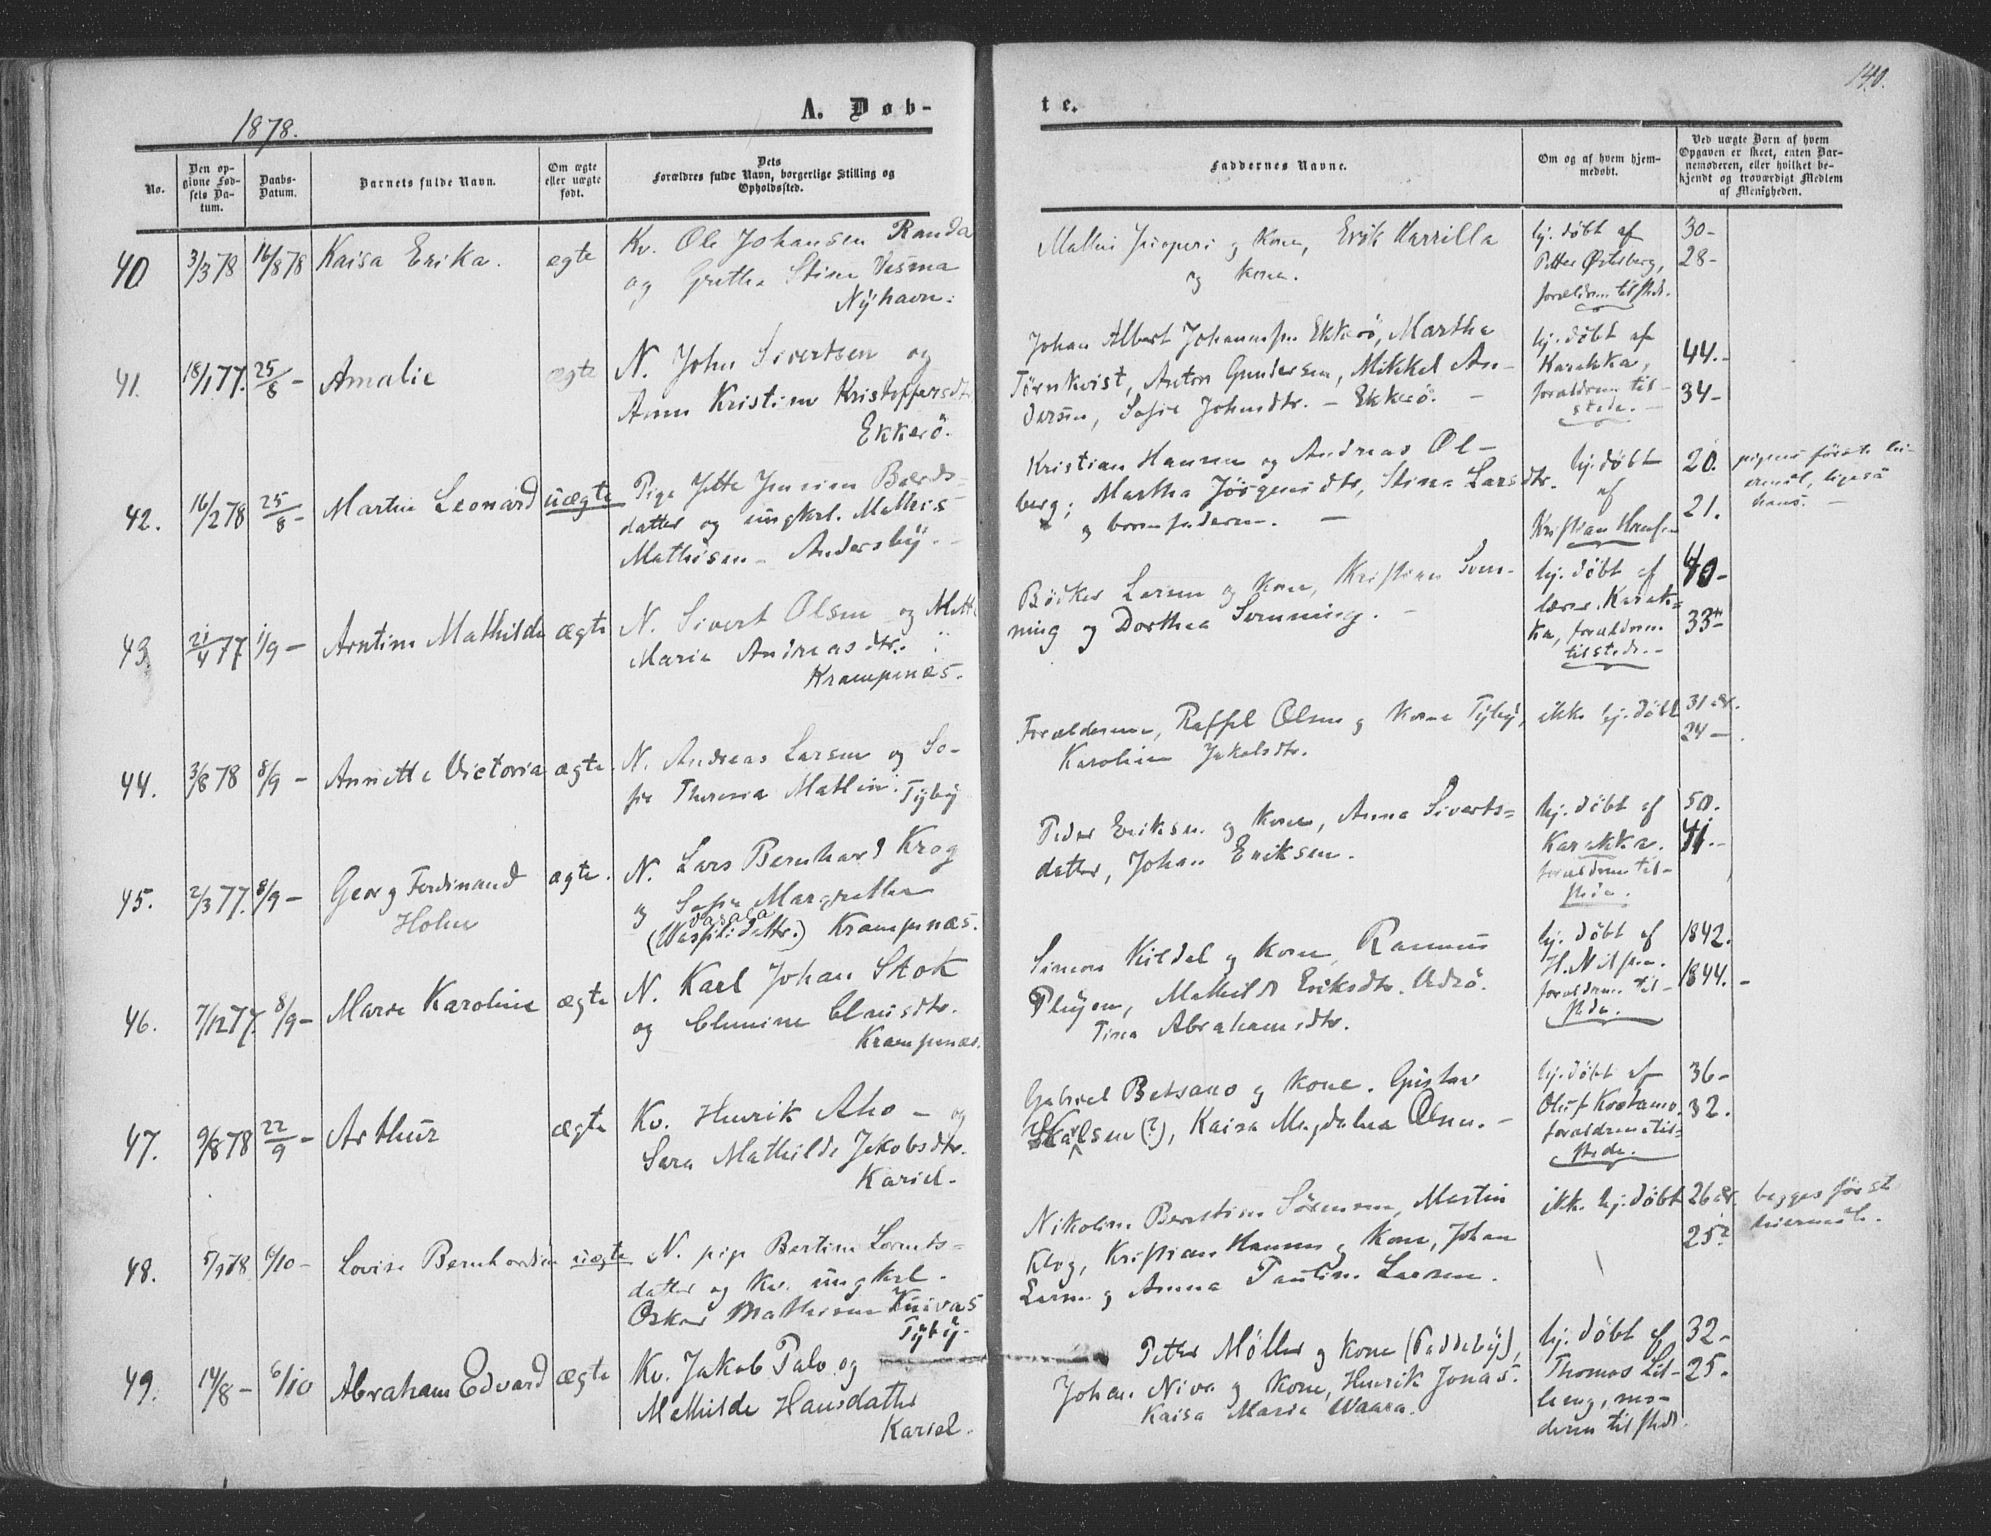 140.
1878.
A. Døb-
te.
No.
Den op-
givne Fød-
sels Da-
tum.
Daabs-
Datum.
Barnets fulde Navn.
Om ægte
eller uægte
født.
Dets
Forældres fulde Navn, borgerlige Stilling og
Opholdssted.
Faddernes Navne.
Om og af hvem hjem-
medøbt.
Ved uægte Børn af hvem
Opgaven er skeet, enten Bar-
nemoderen, eller hvilket be-
kjendt og troværdigt Medlem
af Menigheden.
40
3/3 78
16/8 78
Kaisa Erika.
ægte
Kv. Ole Johansen Randa
og Gretha Stina Vesma
Nÿhavn.
og Kone, Erik Harrilla
og kone.
hj. døbt af
Petter Østerberg,
forældrene tilstede.
30-
28-
41.
18/1 77.
25/8 -
Amalie
ægte
N. John Sivertsen og
Anna Kristine Kristoffersdtr
Ekkerö.
Johan Albert Johannessen Ekkerö, Martha
Törnkvist, Anton Gundersen, Mikkel An-
dersen, Sofie Johnsdtr. - Ekkerö. -
hj. døbt af
Karakka,
forældrene til-
stede. -
44.-
34-
42.
16/2 78
25/8 -
Martin Leonard
uægte
Pige Jette Jensine Baards-
datter og ungkrl. Mathis
Mathisen - Andersbÿ. -
Kristian Hansen og Andreas Ol-
berg; Martha Jörgensdtr, Stina Larsdtr.
og barnefaderen. -
hj. døbt
af
Kristian Hansen
20.
21.
pigens første lei-
ermål, ligeså
hans. -
43.
21/4 77
1/9 -
Arntine Mathilde
ægte
N. Sivert Olsen og Mette
Maria Andreasdtr.
Krampenæs.
Bödker Larsen og Kone, Kristian Sven-
ning og Dorthea Svenning. -
hj. døbt af
lærer Karak-
ka, forældrene
tilstede. -
40-
33-
44.
3/8 78
8/9 -
Annette Victoria
ægte.
N. Andreas Larsen og So-
fie Theresia Mathin.
Tÿbÿ
Forældrene, Raffel Olsen og Kone Tÿbÿ,
Karoline Jakobsdtr.
ikke hj. døbt
31 år.
24 -
45.
2/3 77.
8/9 -
Georg Ferdinand
Holm
ægte.
N. Lars Bernhard Krog
og Sofie Margrethe
Vasara
Krampenæs.
Peder Eriksen og Kone, Anna Siverts-
datter, Johan Eriksen.
hj. døbt af
Karakka.
forældrene til-
stede.
50.
41.-
46.
7/12 77.
8/9 -
Marie Karoline
ægte
N. Karl Johan Stok
og Clemine Clausdtr.
Krampenæs.
Simon Kildal og Kone, Rasmus
Pleÿm, Mathilde Eriksdtr. Vadsö.
Tina Abrahamsdtr.
hj. døbt af
H. Nilsen.
forældrene til-
stede.
1842.
1844. -
47.
9/8 78
22/9 -
Arthur
ægte
Kv. Henrik Aho - og
Sara Mathilde Jakobsdtr.
Kariel.
Gabriel Betsano og Kone. Gustav
Karlsen (?), Kaisa Magdalena Olsen. -
hj. døbt af
Oluf Koskamo.
forældrene til-
stede.
36-
32.
48.
5/9 78
6/10 -
Lovise Bernhardine
uægte
N. pige Bertine Lorents-
datter og Kv. ungkrl.
Oskar Mathisen Kuivas
Tÿbÿ.
Nikoline Berntine Sörensen, Martin
Klog, Kristian Hansen og Kone, Johan
Larsen og Anna Pauline Larsen.
ikke hj. døbt
26 år.
25?
begges første
leiermål.
49.
14/8 -
6/10
Abraham Edvard
ægte
Kv. Jakob Palo og
Mathilde Hansdatter
Kariel.
Petter Møller og kone (Paddebÿ),
Johan Niva og Kone, Henrik Jonas.
Kaisa Maria Waara.
hj. døbt af
Thomas Lil-
leng, mo-
deren tilstede.
32-
25.